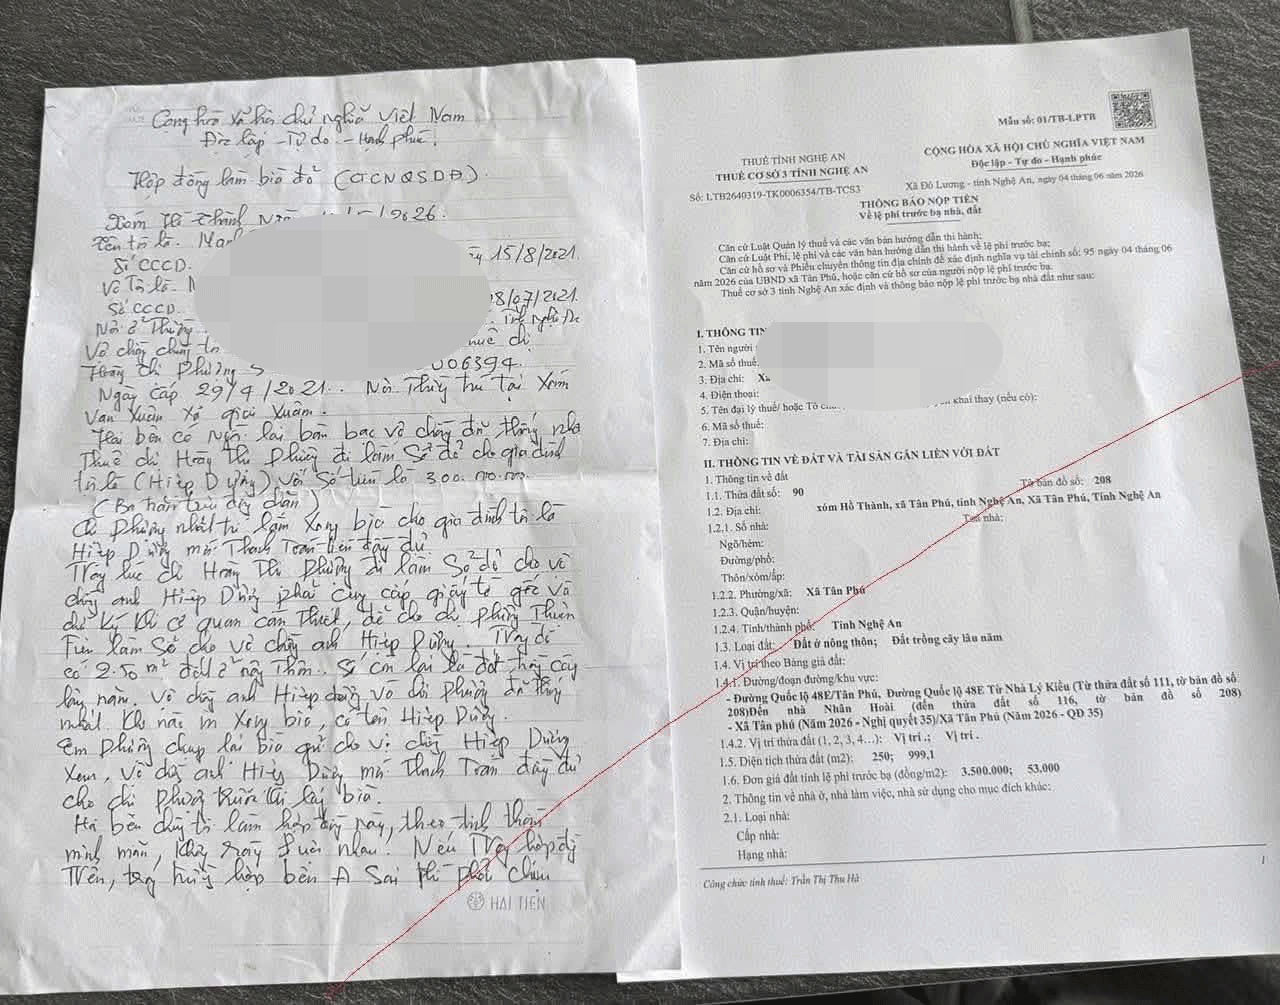 Cộng hòa xã hội chủ nghĩa Việt Nam
Độc lập - Tự do - Hạnh phúc.
Hợp đồng làm bìa đỏ (GCNQSDĐ).
2026.
Tên tôi là.
15/8/2021.
Số CCCD.
Vợ Tôi là.
28/07/2021.
Số CCCD.
Nơi ở
Vợ chồng tôi thuê chị
Hoàng Thị Phương 006394.
Ngày cấp 29/4/2021... Nơi Thường trú tại Xóm
Vạn Xuân Xã giai Xuân.
Hai bên có Ngồi lại bàn bạc Vợ chồng đã thống nhất
Thuê chị Hoàng Thị Phương đi làm Sổ đỏ cho gia đình
tôi là (Hiệp Dương) với Số tiền là 300.000.000.
(Ba trăm triệu đồng chẵn)
Chị Phương nhất trí làm Xong bìa cho gia đình tôi là
Hiệp Dương mới Thanh Toán tiền đầy đủ
Trong lúc chị Hoàng Thị Phương đi làm Sổ đỏ cho vợ
chồng anh Hiệp Dương phải cung cấp giấy tờ gốc và
chữ ký khi cơ quan cần Thiết, để cho chị Phương
làm Sổ cho vợ chồng anh Hiệp Dương. Trong đó
có 250 m² đất ở nông Thôn. Số còn lại là đất trồng cây
lâu năm. Vợ chồng anh Hiệp Dương và chị Phương đã thống
nhất. Khi nào in Xong bìa, có tên Hiệp Dương.
Em Phương chụp lại bìa gửi cho vợ chồng Hiệp Dương
Xem, Vợ chồng anh Hiệp Dương mới Thanh Toán đầy đủ
cho chị Phương trước khi lấy bìa.
Hai bên chúng tôi làm hợp đồng này, theo tinh thần
minh mẫn, Không ràng buộc nhau. Nếu Trong hợp đồng
Trên, trường hợp bên A Sai thì phải chịu
HẢI TIẾN
Mẫu số: 01/TB-LPTB
THUẾ TỈNH NGHỆ AN
THUẾ CƠ SỞ 3 TỈNH NGHỆ AN
Số: LTB2640319-TK0006354/TB-TCS3
CỘNG HÒA XÃ HỘI CHỦ NGHĨA VIỆT NAM
Độc lập - Tự do - Hạnh phúc
Xã Đô Lương - tỉnh Nghệ An, ngày 04 tháng 06 năm 2026
THÔNG BÁO NỘP TIỀN
Về lệ phí trước bạ nhà, đất
Căn cứ Luật Quản lý thuế và các văn bản hướng dẫn thi hành;
Căn cứ Luật Phí, lệ phí và các văn bản hướng dẫn thi hành về lệ phí trước bạ;
Căn cứ hồ sơ và Phiếu chuyển thông tin địa chính để xác định nghĩa vụ tài chính số: 95 ngày 04 tháng 06
năm 2026 của UBND xã Tân Phú, hoặc căn cứ hồ sơ của người nộp lệ phí trước bạ.
Thuế cơ sở 3 tỉnh Nghệ An xác định và thông báo nộp lệ phí trước bạ nhà đất như sau:
I. THÔNG TIN
1. Tên người
2. Mã số thuế
3. Địa chỉ:
4. Điện thoại:
5. Tên đại lý thuế/ hoặc Tổ khai thay (nếu có):
6. Mã số thuế:
7. Địa chỉ:
II. THÔNG TIN VỀ ĐẤT VÀ TÀI SẢN GẮN LIỀN VỚI ĐẤT
1. Thông tin về đất
1.1. Thửa đất số: 90 Tờ bản đồ số: 208
1.2. Địa chỉ: xóm Hồ Thành, xã Tân Phú, tỉnh Nghệ An, Xã Tân Phú, Tỉnh Nghệ An
1.2.1. Số nhà: Toà nhà:
Ngõ/hẻm:
Đường/phố:
Thôn/xóm/ấp:
1.2.2. Phường/xã: Xã Tân Phú
1.2.3. Quận/huyện:
1.2.4. Tỉnh/thành phố: Tỉnh Nghệ An
1.3. Loại đất: Đất ở nông thôn; Đất trồng cây lâu năm
1.4. Vị trí theo Bảng giá đất:
1.4.1. Đường/đoạn đường/khu vực:
- Đường Quốc lộ 48E/Tân Phú, Đường Quốc lộ 48E Từ Nhà Lý Kiều (Từ thửa đất số 111, từ bản đồ số
208)Đến nhà Nhân Hoài (đến thửa đất số 116, từ bản đồ số 208)
- Xã Tân phú (Năm 2026 - Nghị quyết 35)/Xã Tân Phú (Năm 2026 - QĐ 35)
1.4.2. Vị trí thửa đất (1, 2, 3, 4…): Vị trí .; Vị trí .
1.5. Diện tích thửa đất (m2): 250; 999,1
1.6. Đơn giá đất tính lệ phí trước bạ (đồng/m2): 3.500.000; 53.000
2. Thông tin về nhà ở, nhà làm việc, nhà sử dụng cho mục đích khác:
2.1. Loại nhà:
Cấp nhà:
Hạng nhà:
1
Công chức tính thuế: Trần Thị Thu Hà